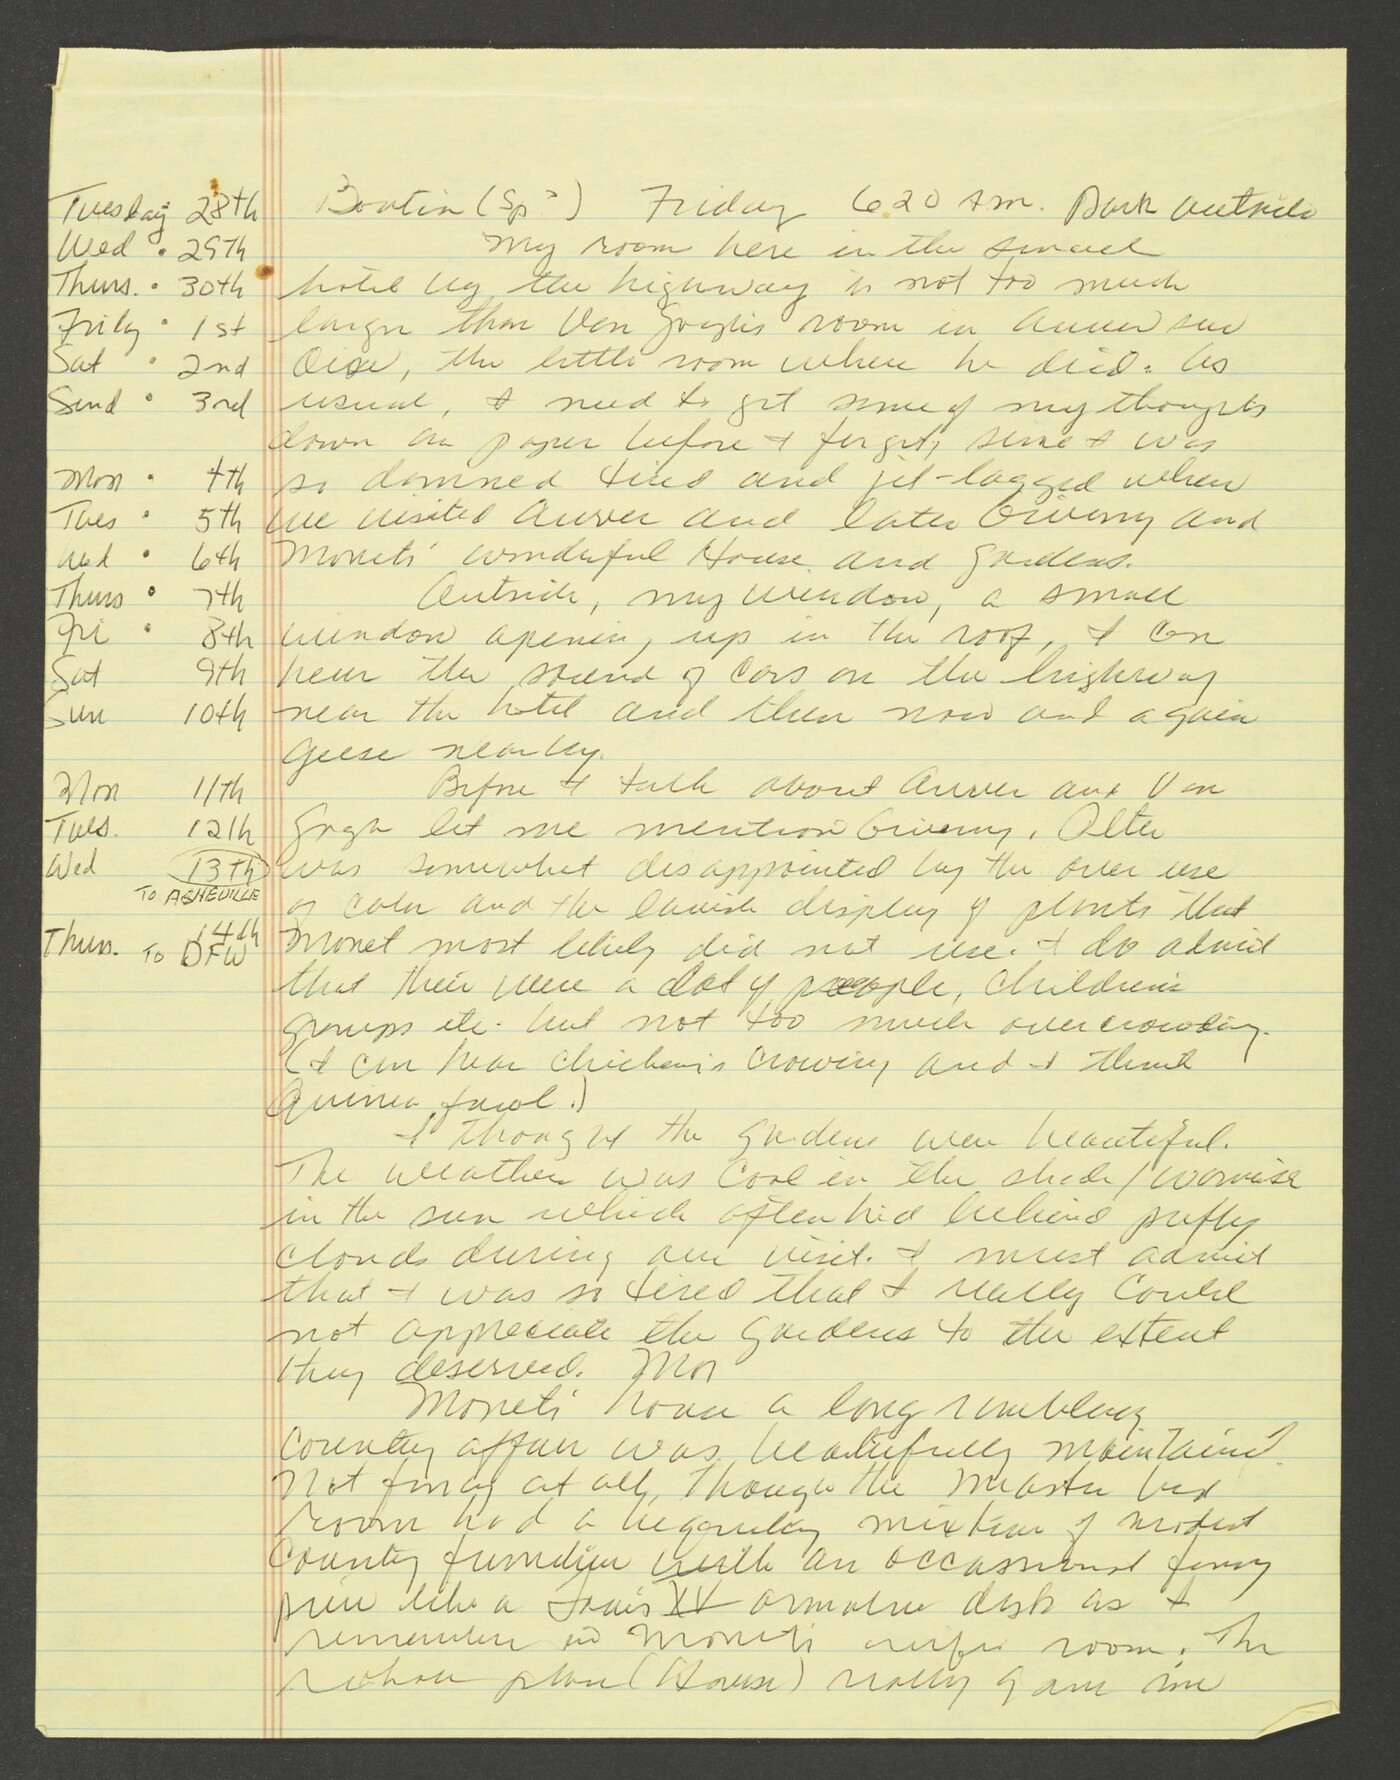 Tuesday 28th
Wed • 29th
Thurs. • 30th
Friday • 1st
Sat • 2nd
Sund • 3rd
Mon • 4th
Tues • 5th
Wed • 6th
Thurs • 7th
Fri • 8th
Sat 9th
Sun 10th
Mon 11th
Tues. 12th
Wed 13th
TO ASHEVILLE
Thurs. 14th
TO DFW
(Sp?) Friday 6 20 AM. Dark outside
My room here in the small
hotel by the highway is not too much
larger than Van Gogh's room in Auver sur
Oise, the little room where he died. As
usual, I need to get some of my thoughts
down on paper before I forget, since I was
so damned tired and jet-lagged when
we visited Auver and later Giverny and
Monets' wonderful House and gardens.
Outside, my window, a small
window opening up in the roof, I can
hear the sound of cars on the highway
near the hotel and then now and again
geese nearby.
Before I talk about Auver and Van
Gogh let me mention Giverny.
was somewhat disappointed by the over use
of color and the lavish display of plants that
Monet most likely did not use. I do admit
that their were a lot of people, children's
groups etc. but not too much overcrowding.
(I can hear chickens crowing and I think
Guinea fowl.)
I thought the gardens were beautiful.
The weather was cool in the shade / warmish
in the sun which often hid behind puffy
clouds during our visit. I must admit
that I was so tired that I really could
not appreciate the gardens to the extent
they deserved. Mon
Monets' house a long rambling
country affair was beautifully maintained.
Not fancy at all, though the Master bed
room had a mixture of modest
country furniture with an occassional fancy
piece like a Louis XV desk as I
remember in Monet's wife's room. The
whole place (House) really gave me